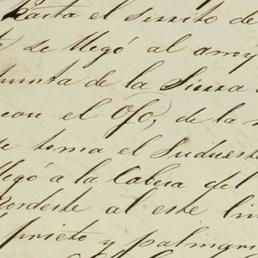 hasta el serrito de
se llegó al arroy
punta de la Sierra
con el Ojo, de la
se toma el Sudueste
llegó a la Cabesa del
Nordeste al este lin
prieto y palmari